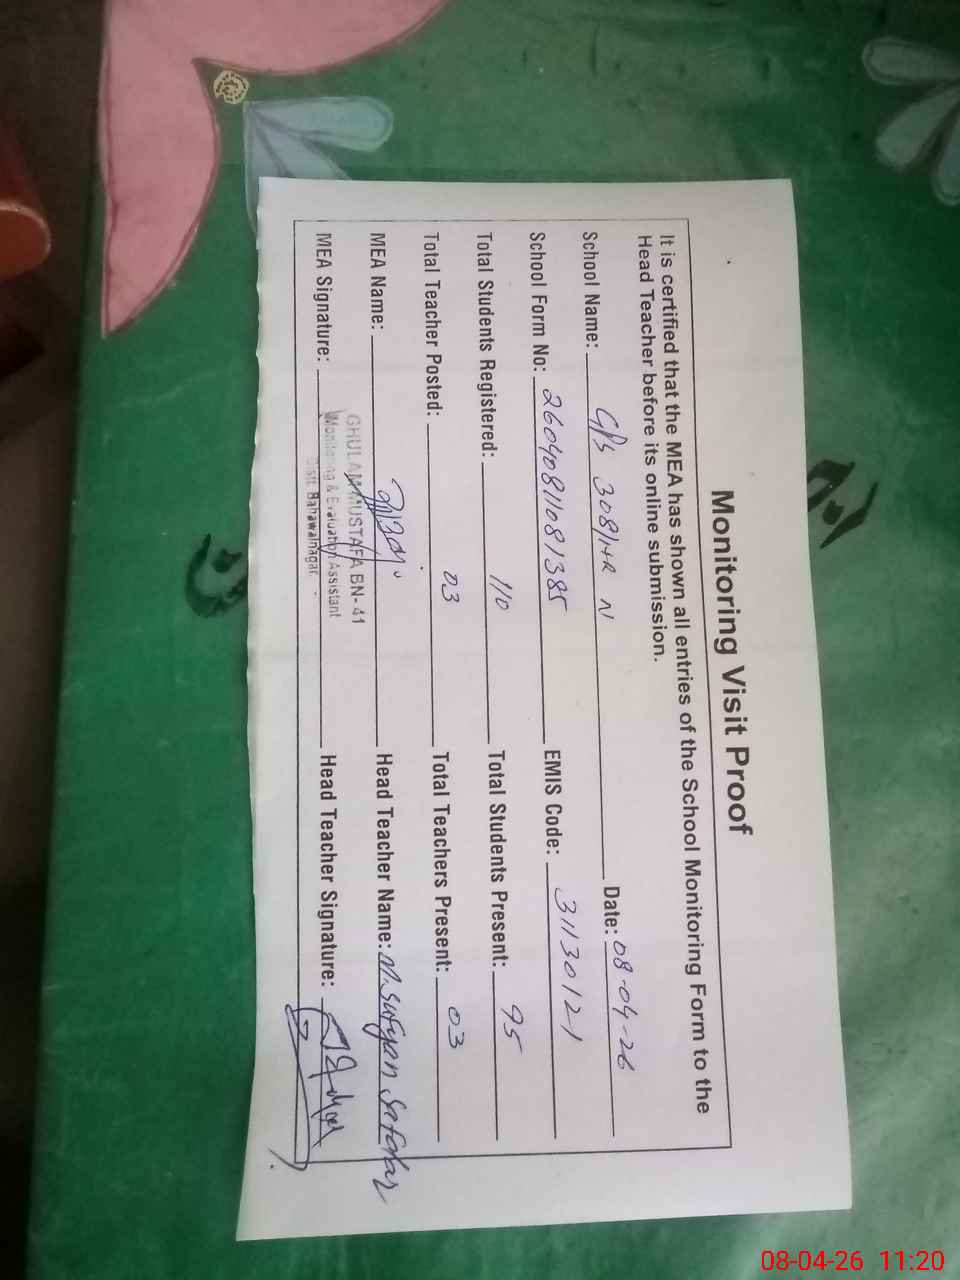 Monitoring Visit Proof
It is certified that the MEA has shown all entries of the School Monitoring Form to the
Head Teacher before its online submission.
School Name: GPS 308/HR N Date: 08-04-26
School Form No: 26040811081385 EMIS Code: 31130121
Total Students Registered: 110 Total Students Present: 95
Total Teacher Posted: 03 Total Teachers Present: 03
MEA Name: Head Teacher Name: M. Sufyan
GHULAM MUSTAFA BN- 41
MEA Signature: Head Teacher Signature:
Monitoring & Evaluation Assistant
Distt. Bahawalnagar.
08-04-26 11:20